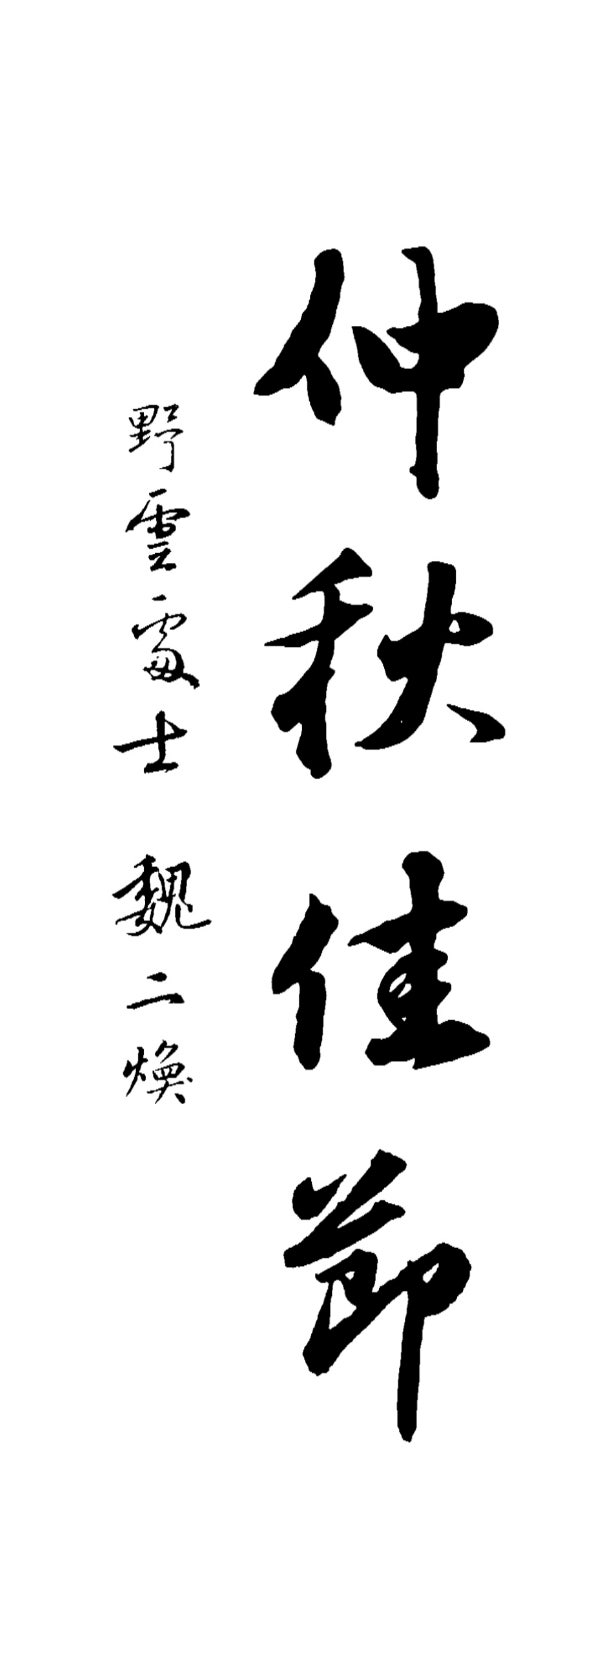 仲秋佳節
野雲處士 魏二煥